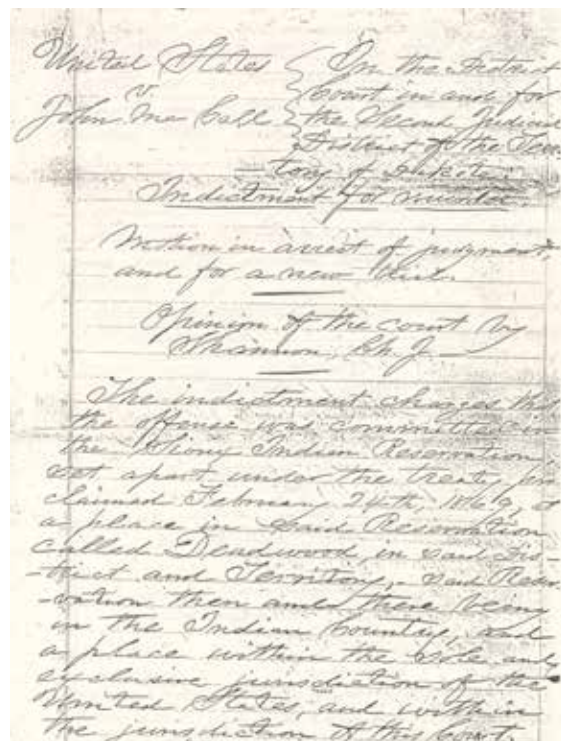 United States { In the District
v. Court in and for
John McCall the Second Judicial
District of the Terri-
tory of Dakota.
Indictment for murder.
Motion in arrest of judgment,
and for a new trial.
Opinion of the court by
Shannon, Ch. J.
The indictment charges that
the offense was committed in
the Sioux Indian Reservation,
set apart under the treaty pro
claimed February 24th, 1869, at
a place in said Reservation
called Deadwood, in said Dis-
-trict and Territory,- said Reser-
-vation then and there being
in the Indian Country, and
a place within the sole and
exclusive jurisdiction of the
United States, and within
the jurisdiction of this Court.